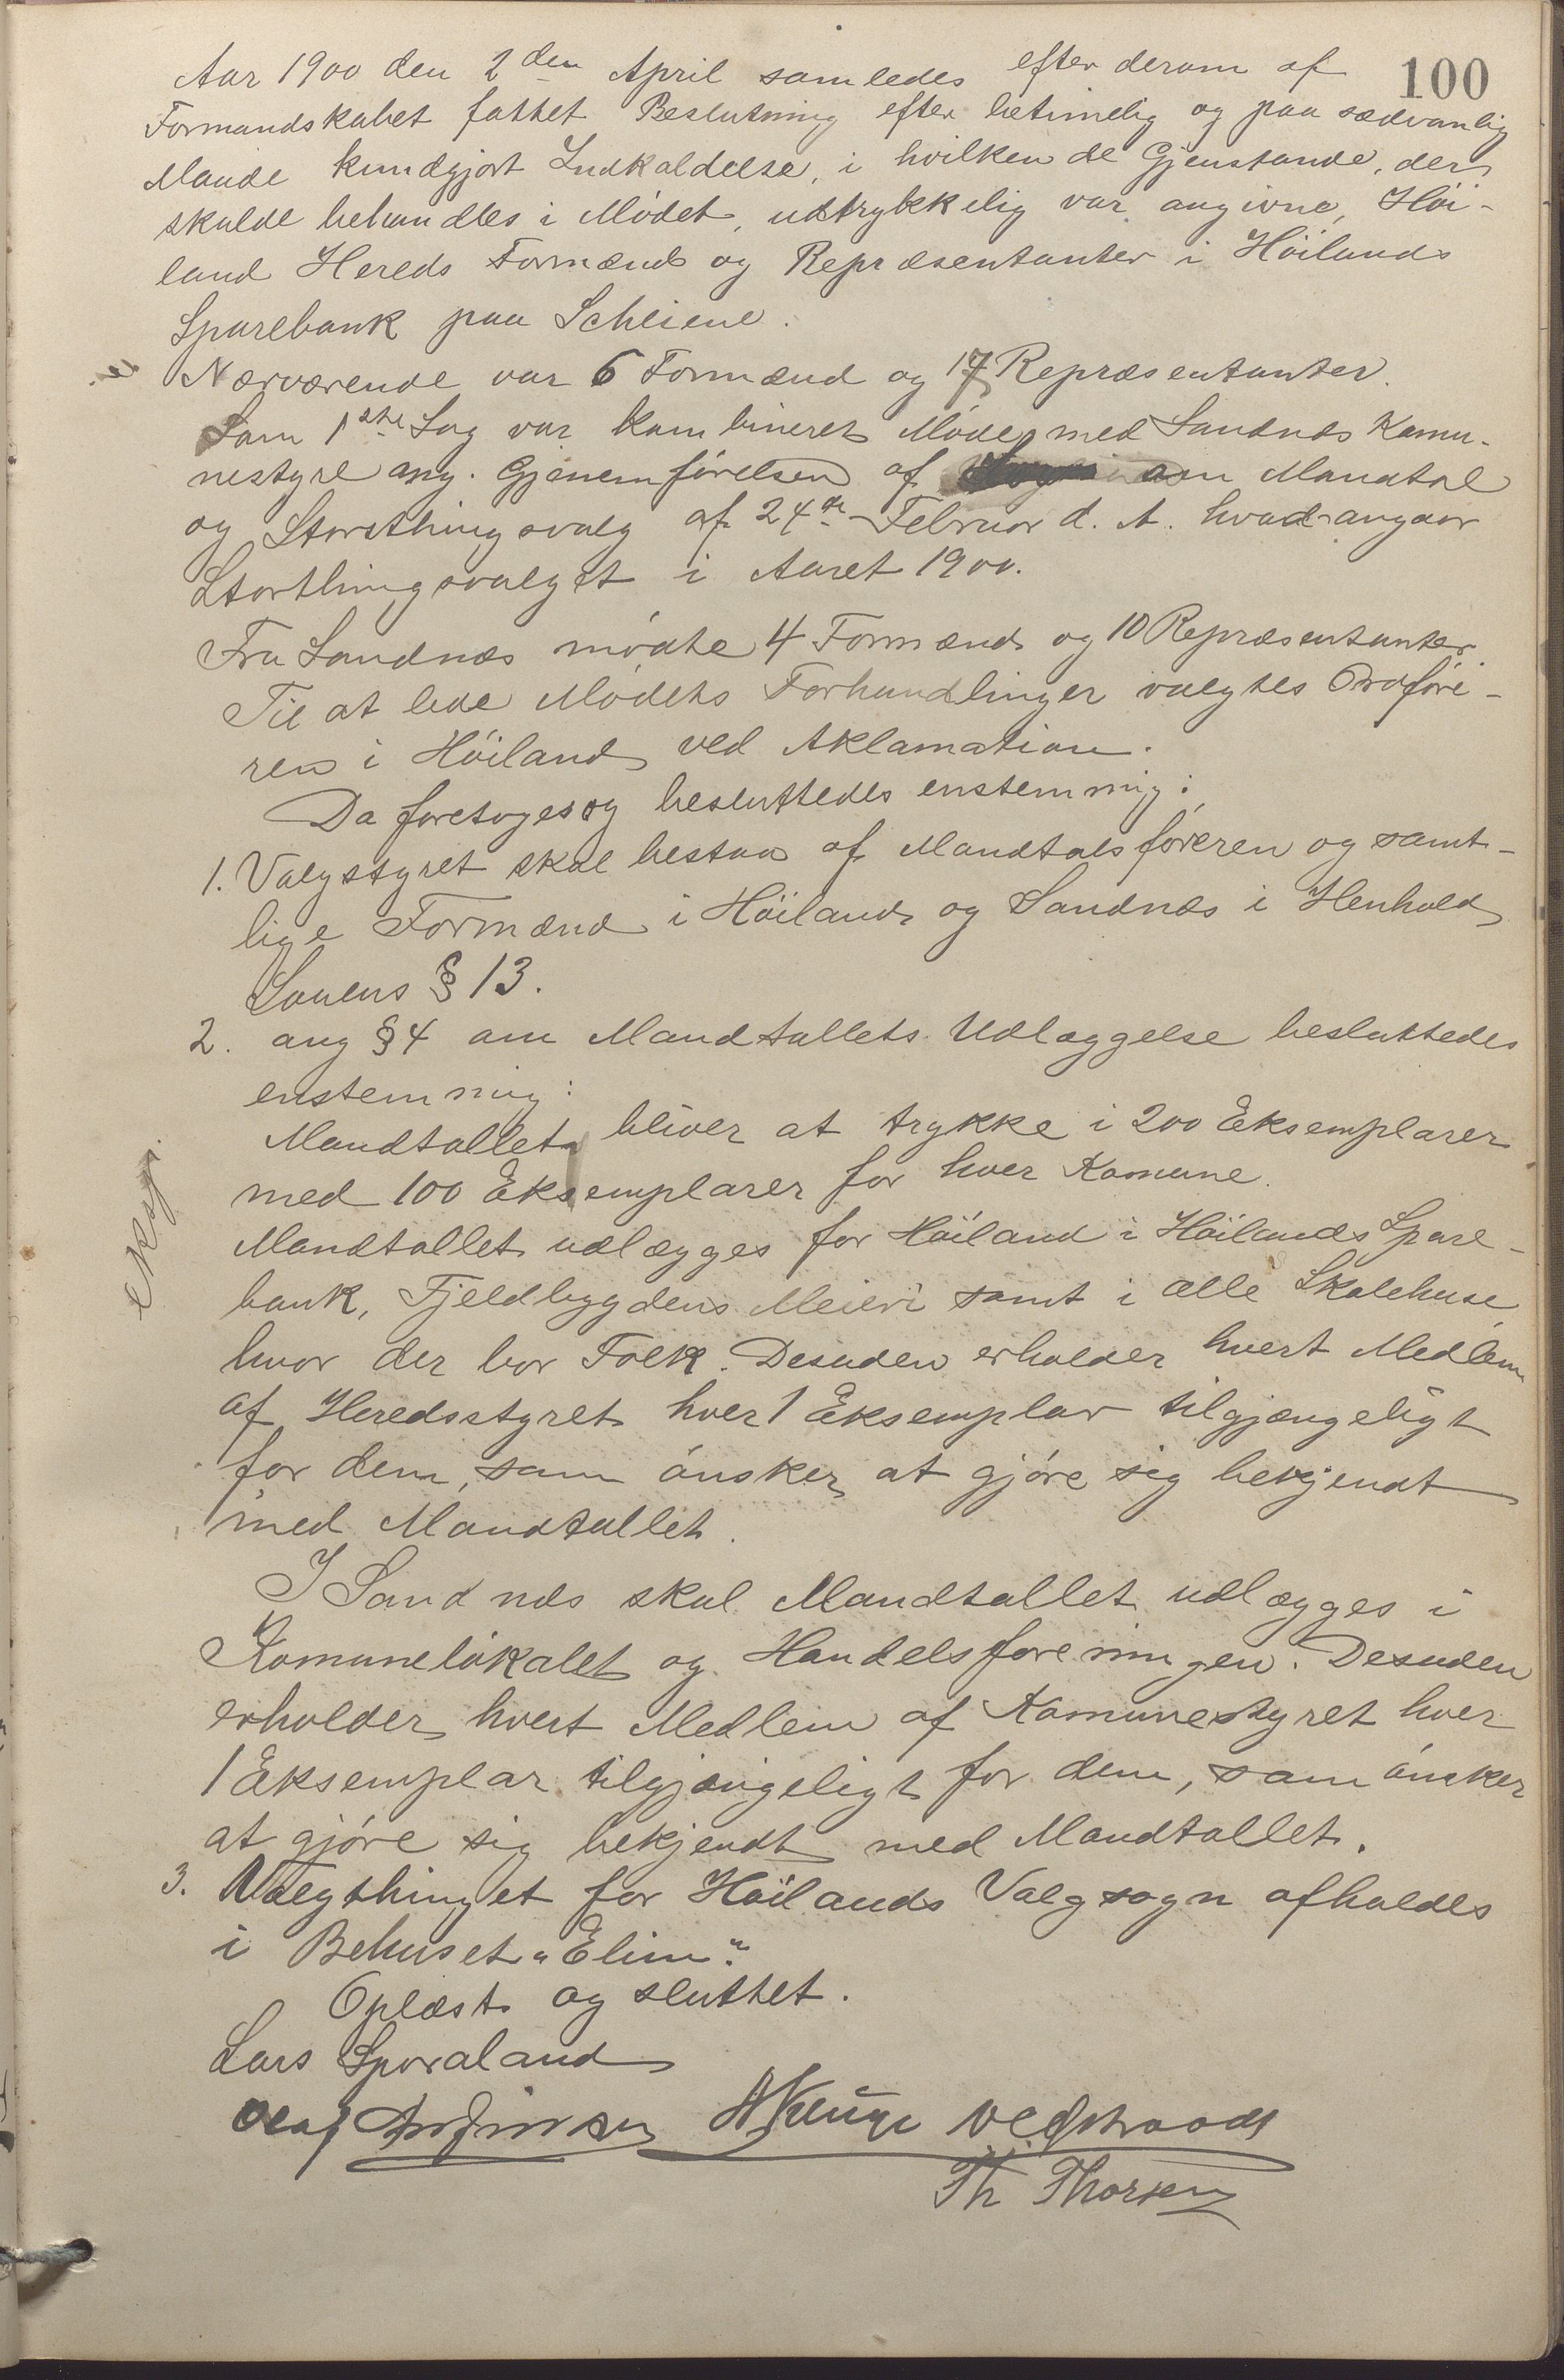 100
Aar 1900 den 2den April samledes efter derom af
Formandskabet fattet Beslutning efter betimelig og paa sædvanlig
Maade kundgjort Indkaldelse, i hvilken de Gjenstande, der
skulde behandles i Mødet, udtrykkelig var angivne, Høi-
land Hereds Formænd og Repræsentanter i Høilands
Sparebank paa Scheiene.
Nærværende var 6 Formænd og 17 Repræsentanter.
Som 1ste Sag var kombineret Møde med Sandnæs Komu-
nestyre ang. Gjenemførelsen af om Mandtal
og Storsthingsvalg af 24de Februar d. A. hvad angaar
Storthingsvalget i Aaret 1900.
Fra Sandnæs mødte 4 Formænd og 10 Repræsentanter.
Til at lede Mødets Forhandlinger valgtes Ordføre-
ren i Høiland ved Aklamation.
Da foretoges og besluttedes enstemmig:
1. Valgstyret skal bestaa af Mandtalsføreren og samt-
lige Formænd i Høiland og Sandnæs i Henhold
Lovens § 13.
2. ang § 4 om Mandtallets Udlæggelse besluttedes
enstemmig:
Mandtallet bliver at trykke i 200 Eksemplarer
med 100 Eksemplarer for hver Komune.
Ekspi.
Mandtallet udlægges for Høiland i Høilands Spare-
bank, Fjeldbygdens Meieri samt i alle Skolehuse,
hvor der bor Folk. Desuden erholder hvert Medlem
af Heredsstyret hver 1 Eksemplar tilgjængeligt
for dem, som ønsker at gjøre sig bekjendt
med Mandtallet.
I Sandnæs skal Mandtallet udlægges i
Komunelokalet og Handelsforeningen. Desuden
erholder hvert Medlem af Komunestyret hver
1 Eksemplar tilgjængeligt for dem, som ønsker
at gjøre sig bekjendt med Mandtallet.
3. Valgthinget for Høilands Valgsogn afholdes
i Behuset „Elim".
Oplæst og sluttet.
Lars Sporaland
Olaf
Th Thorsen